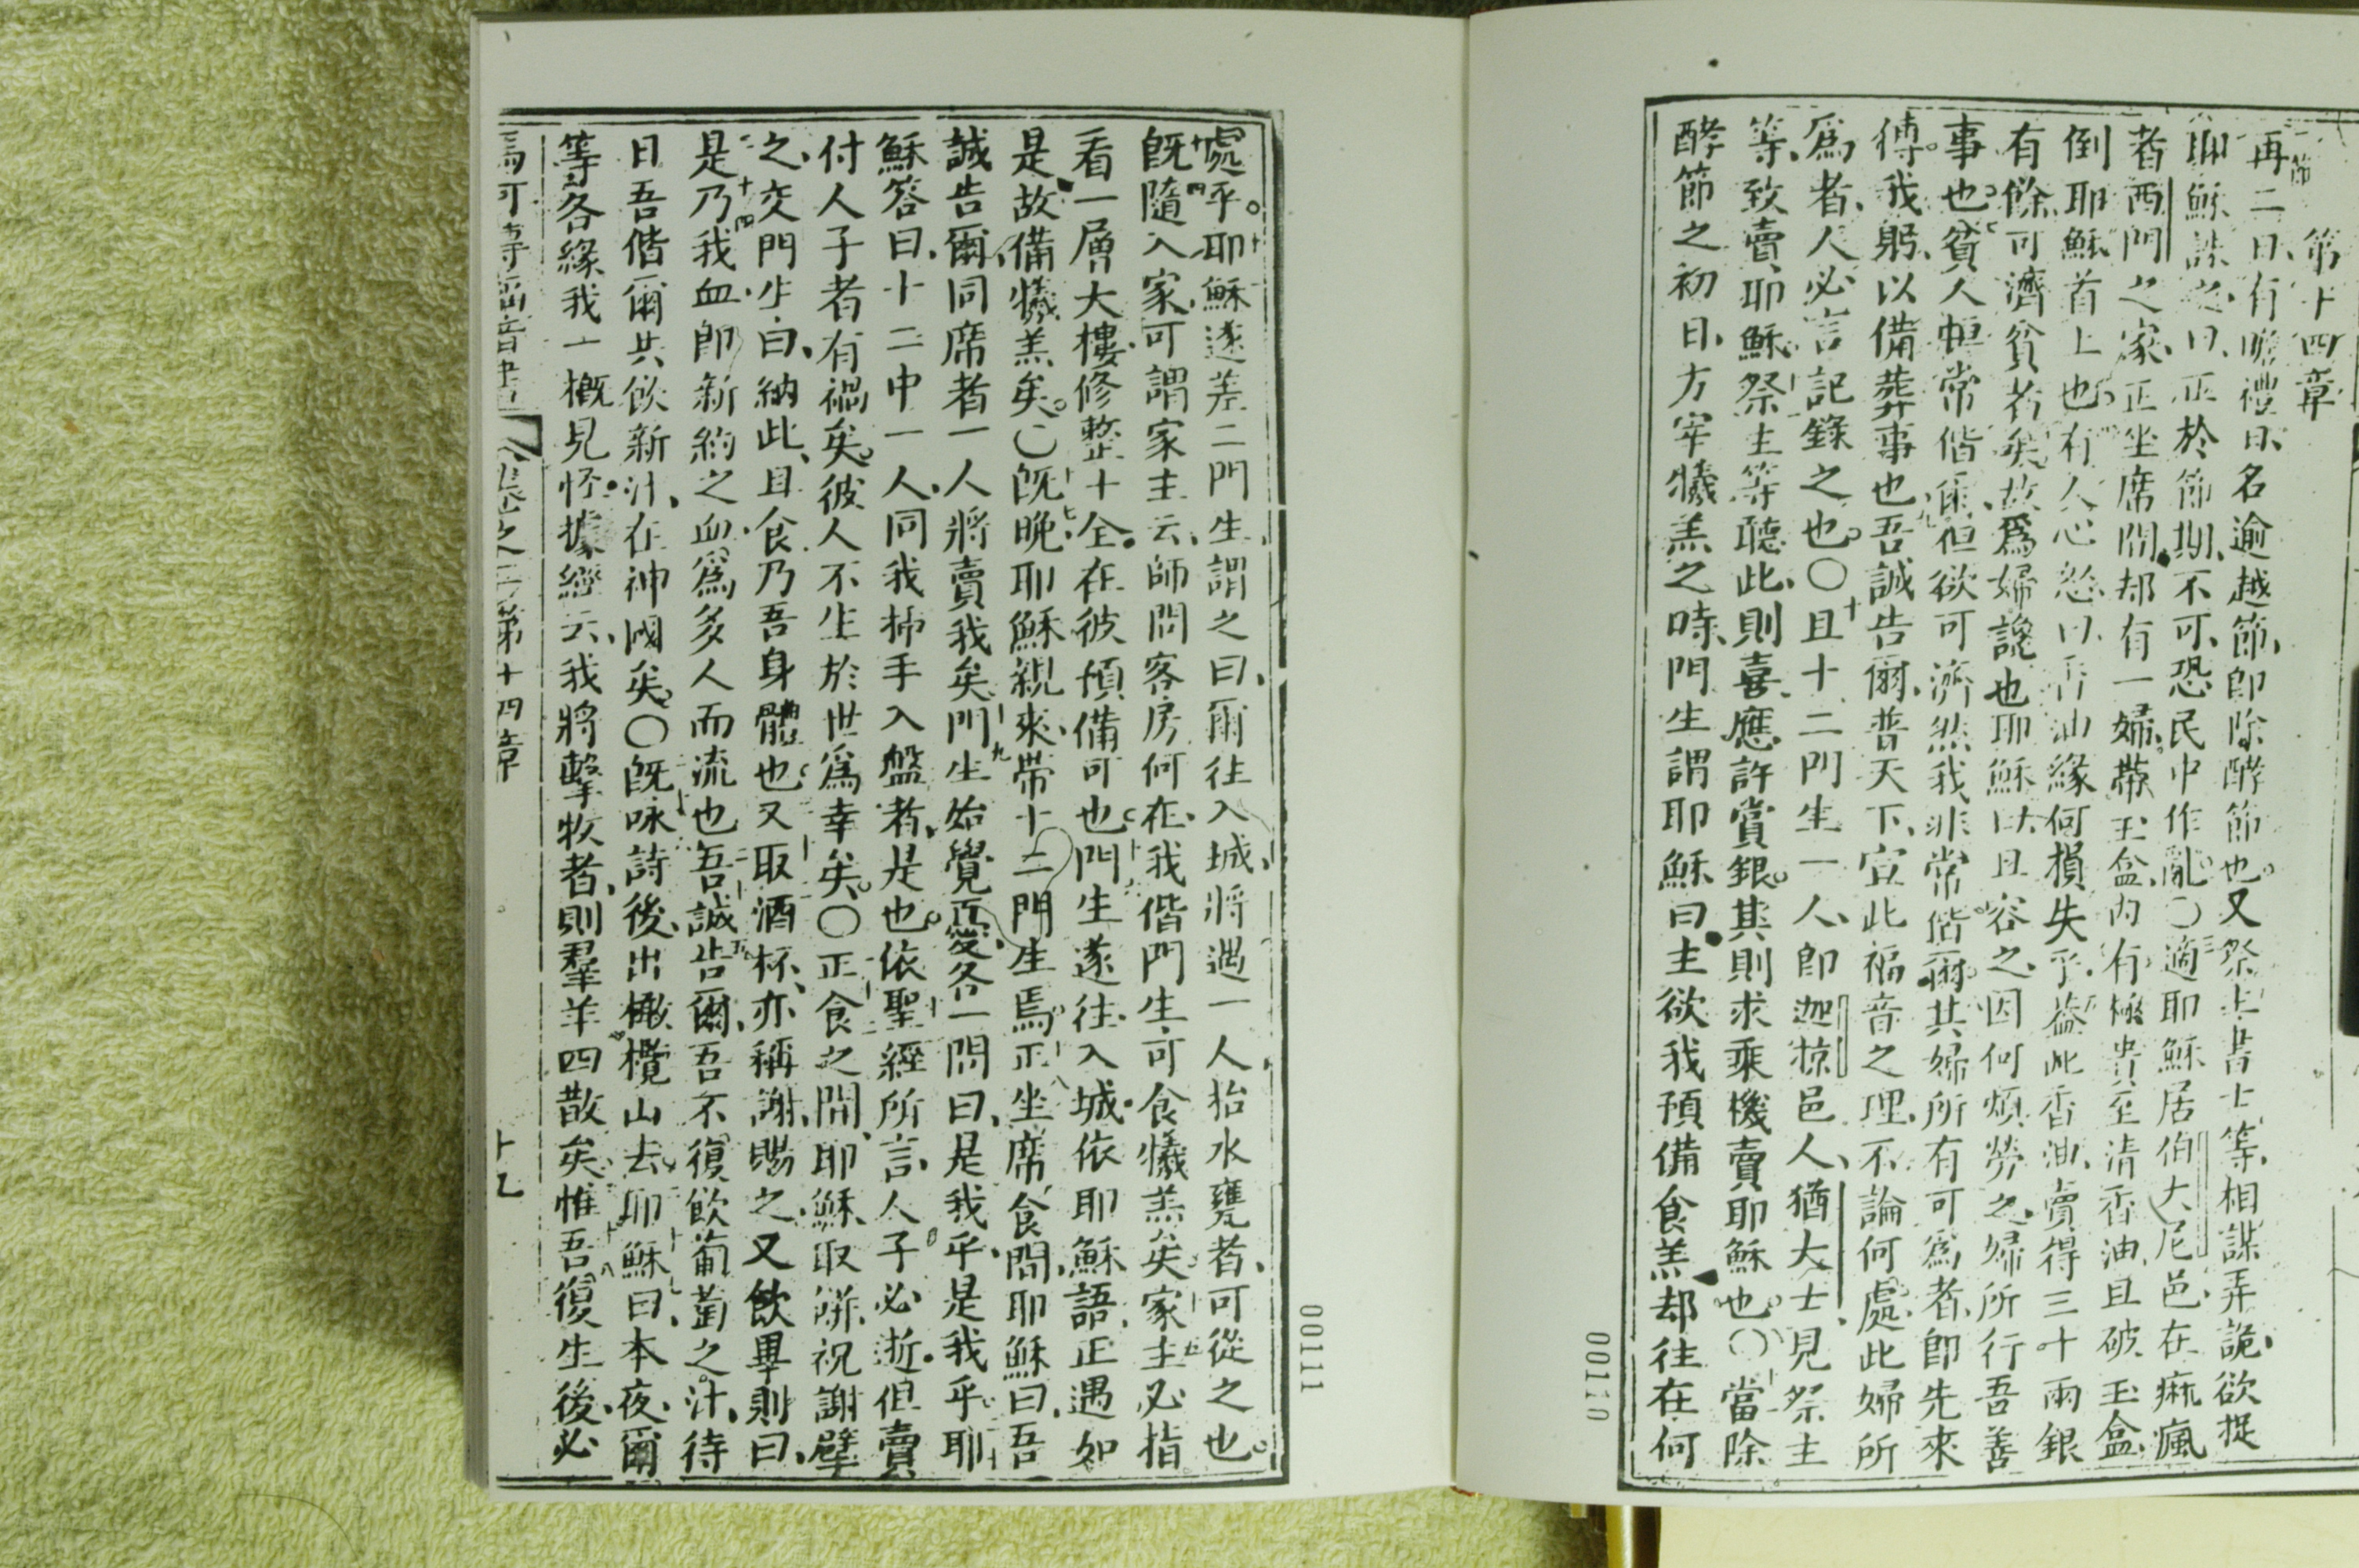 第十四章
再二日、有瞻禮日、名逾越節、即除酵節也。又祭主書士等、相謀弄詭、欲捉
耶穌誅之曰、正於節期、不可、恐民中作亂。〇適耶穌居伯大尼邑、在痲瘋
者西門之家、正坐席間、却有一婦、帶玉盒、內有極貴至清香油、且破玉盒、
倒耶穌首上也。有人心怒曰、香油緣何損失乎、蓋此香油、賣得三十兩銀
有餘、可濟貧者矣、故爲婦讒也。耶穌曰、且容之、因何煩勞之、婦所行吾善
事也。貧人恒常偕爾、但欲可濟、然我非常偕爾。其婦所有可爲者、即先來
傅我躬、以備葬事也。吾誠告爾、普天下、宣此福音之理、不論何處、此婦所
爲者、人必言記錄之也。〇且十二門生一人、即迦掠邑人、猶大士、見祭主
等、致賣耶穌。祭主等聽此、則喜、應許賞銀。其則求乘機賣耶穌也。〇當除
酵節之初日、方宰犧羔之時、門生謂耶穌曰、主欲我預備食羔、却往在何
處乎。耶穌遂差二門生、謂之曰、爾往入城、將遇一人、抬水甕者、可從之也。
既隨入家、可謂家主云、師問客房何在、我偕門生可食犧羔矣、家主必指
看一層大樓、修整十全、在彼預備可也。門生遂往、入城、依耶穌語、正遇如
是、故備犧羔矣。〇既晚、耶穌親來、帶十二門生焉。正坐席、食間、耶穌曰、吾
誠告爾、同席者一人將賣我矣。門生始覺丞憂、各一問曰、是我乎、是我乎、耶
穌答曰、十二中一人、同我抻手入盤者、是也。依聖經所言、人子必逝、但賣
付人子者有禍矣。彼人不生於世爲幸矣。〇正食之間、耶穌取餅、祝謝擘
之、交門生、曰、納此、且食、乃吾身體也。又取酒杯、亦稱謝、賜之、又飲畢、則曰、
是乃我血、即新約之血、爲多人而流也。吾誠告爾、吾不復飲葡萄之汁、待
日吾偕爾共飲新汁、在神國矣。〇既咏詩後、出橄欖山去、耶穌曰、本夜、爾
等各緣我一概見怪、據經云、我將擊牧者、則羣羊四散矣。惟吾復生後、必
馬可傳福音書 卷之二 第十四章 十九
00111
00110